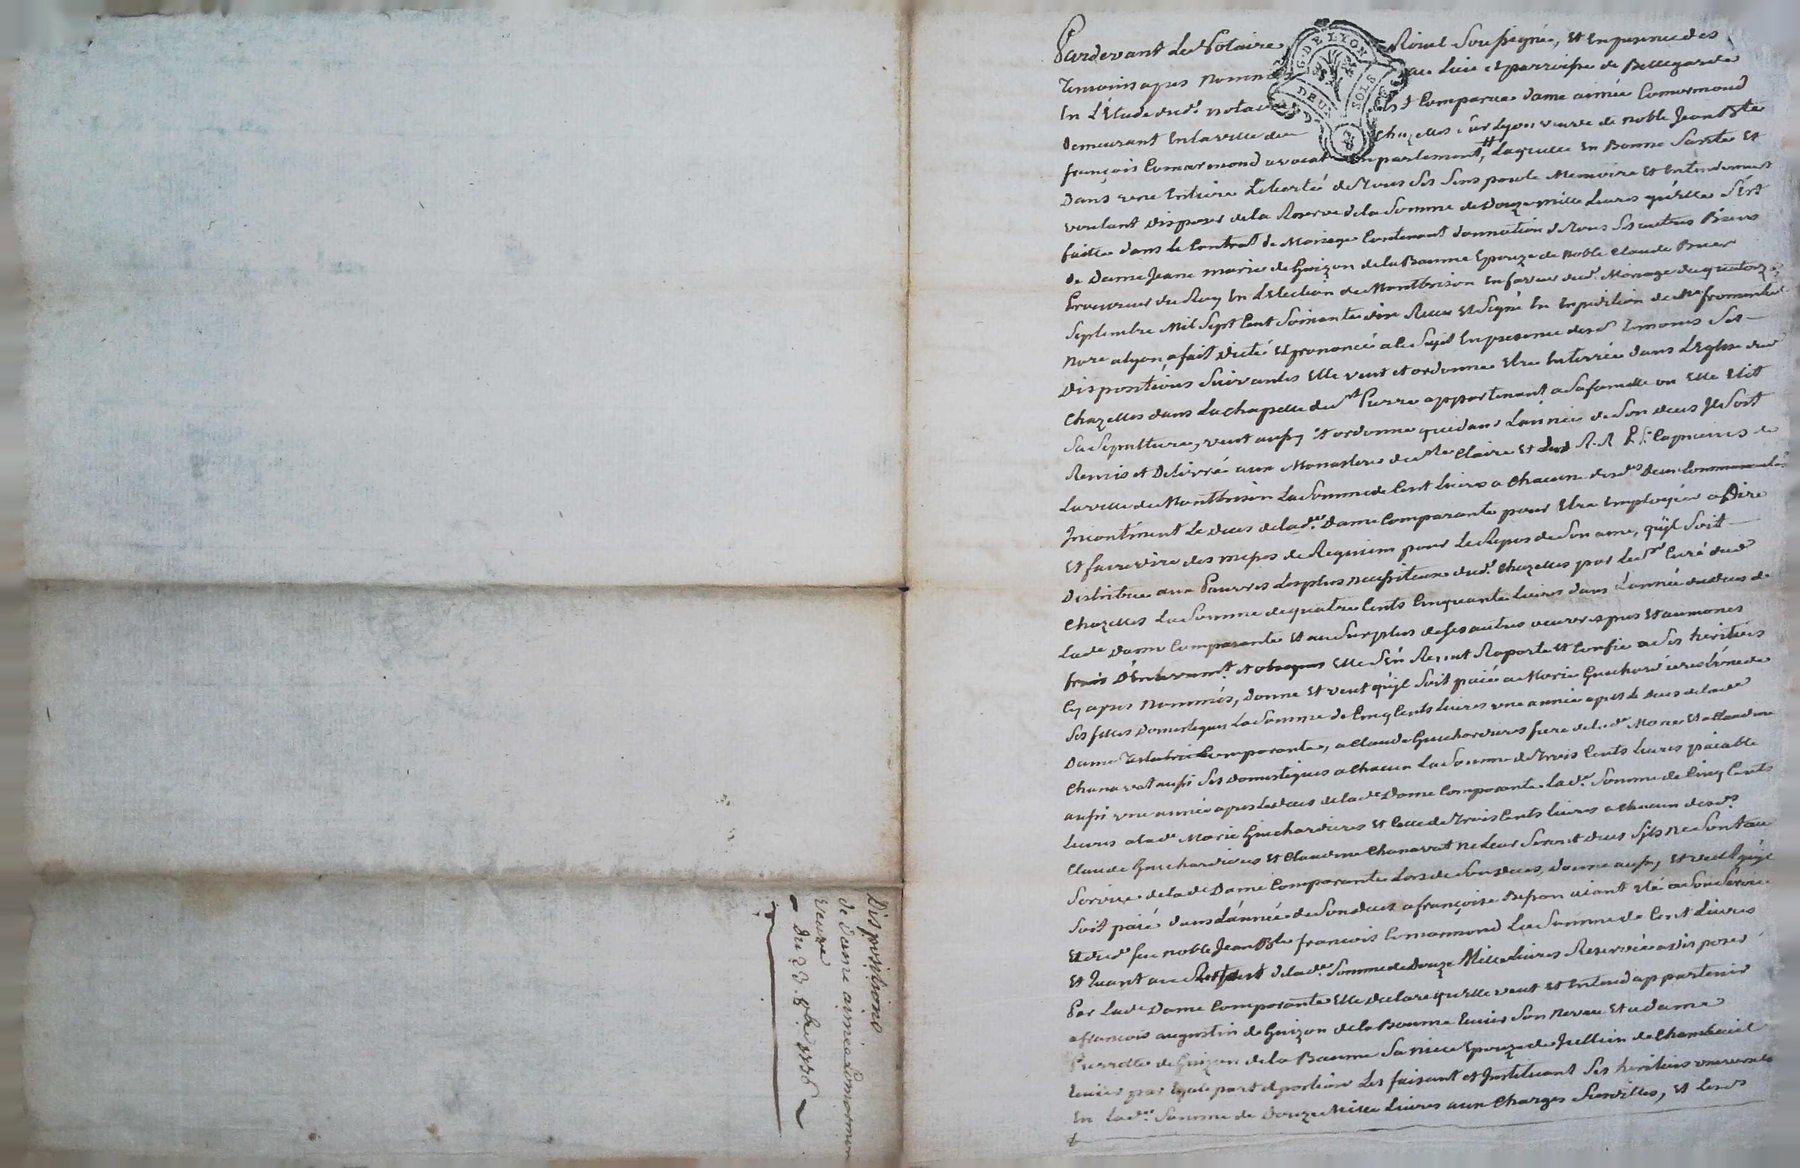 Pardevant Le Notaire Roial Soussigné, Et En presence des
Temoins apres nommés au Lieu et parroisse de Bellegarde
En L'Etude dud. notaire Est Comparue dame aimée Comarmond
demeurant En la ville de Chazelles sur Lyon veuve de noble Jean Bte
françois Comarmond avocat En parlement, Laquelle En Bonne Santé Et
Dans une Entiere Liberté de Tous Ses Sens parole Memoire Et Entendement
voulant disposer de la Reserve de la Somme de Douze mille Livres qu'Elle S'Est
faitte dans le Contrat de Mariage Contenant donnation de Tous Ses autres Biens
de Dame Jeane marie de Guizon de la Baume Epouze de noble Claude
Procureur du Roy En L'Election de Montbrison En faveur dud. Mariage du quatorze
Septembre Mil Sept Cent Soixante dix Receu Et Signé En Expedition de Me fromental
nore a Lyon, a fait dicté Et prononcé a Ce Sujet En presence desd. Temoins Ses
Dispositions Suivantes Elle veut et ordonne Etre Enterrée dans L'Eglise dud.
Chazelles dans La chapelle de St Pierre appartenant a Sa famille ou Elle Elit
Sa Sepulture, veut aussy Et ordonne que dans L'année de Son deces Il Soit
Remis et Delivré aux Monastere de Ste Claire Et des R.R. P.P. Capucins de
La ville de Montbrison La Somme de Cent Livres a Chacun desd. Deux
Incontinent Le deces de lad. Dame Comparante pour Etre Employée a Dire
Et faire dire des messes de Requiem pour Le Repos de Son ame, qu'il Soit
Distribué aux Pauvres Les plus necessiteux dud. Chazelles par Le Sr Curé dud.
Chazelles La Somme de quatre Cents Cinquante Livres dans L'année du deces de
Lad. Dame Comparante Et au Surplus de ses autres œuvres pies Et aumones
frais D'Enterremt. et obseques Elle S'En Remet Raporte Et Confie a Ses heritiers
Cy apres nommés, donne Et veut qu'il Soit paié a Marie Guichardieres L'une de
Ses filles Domestiques La Somme de Cinq Cents Livres une année apres Le deces de lad.
Dame Comparante, a Claude Guichardieres frere de lad. Marie Et a Claudine
Chanavat aussi Ses domestiques a Chacun La Somme de Trois Cents Livres paiable
aussi une année apres Le deces de lad. Dame Comparante Lad. Somme de Cinq Cents
Livres a lad. Marie Guichardieres Et Celle de Trois Cents Livres a Chacun desd.
Claude Guichardieres Et Claudine Chanavat ne Leur Seront dues S'ils ne Sont au
Service de lad. Dame Comparante Lors de Son deces, donne aussy Et veut qu'il
Soit paié dans L'année de Son deces a françoise aiant Eté a Son Service
Et dud. feu noble Jean Bte françois Comarmond La Somme de Cent Livres
Et Quant au Restant de lad. Somme de Douze Mille Livres Reservée a disposer
Par Lad. Dame Comparante Elle declare qu'Elle veut Et Entend appartenir
a françois augustin de Guizon de la Baume Son Neveu Et a dame
Pierrette de Guizon de la Baume Sa niece Epouze de Jullien de Chambeuil
par Egale part et portion Les faisant et Instituant Ses heritiers
En Lad. Somme de Douze Mille Livres aux Charges Et Leurs
Dispositions
de dame aimée Comarmond
veuve
Du 23 8bre 1776